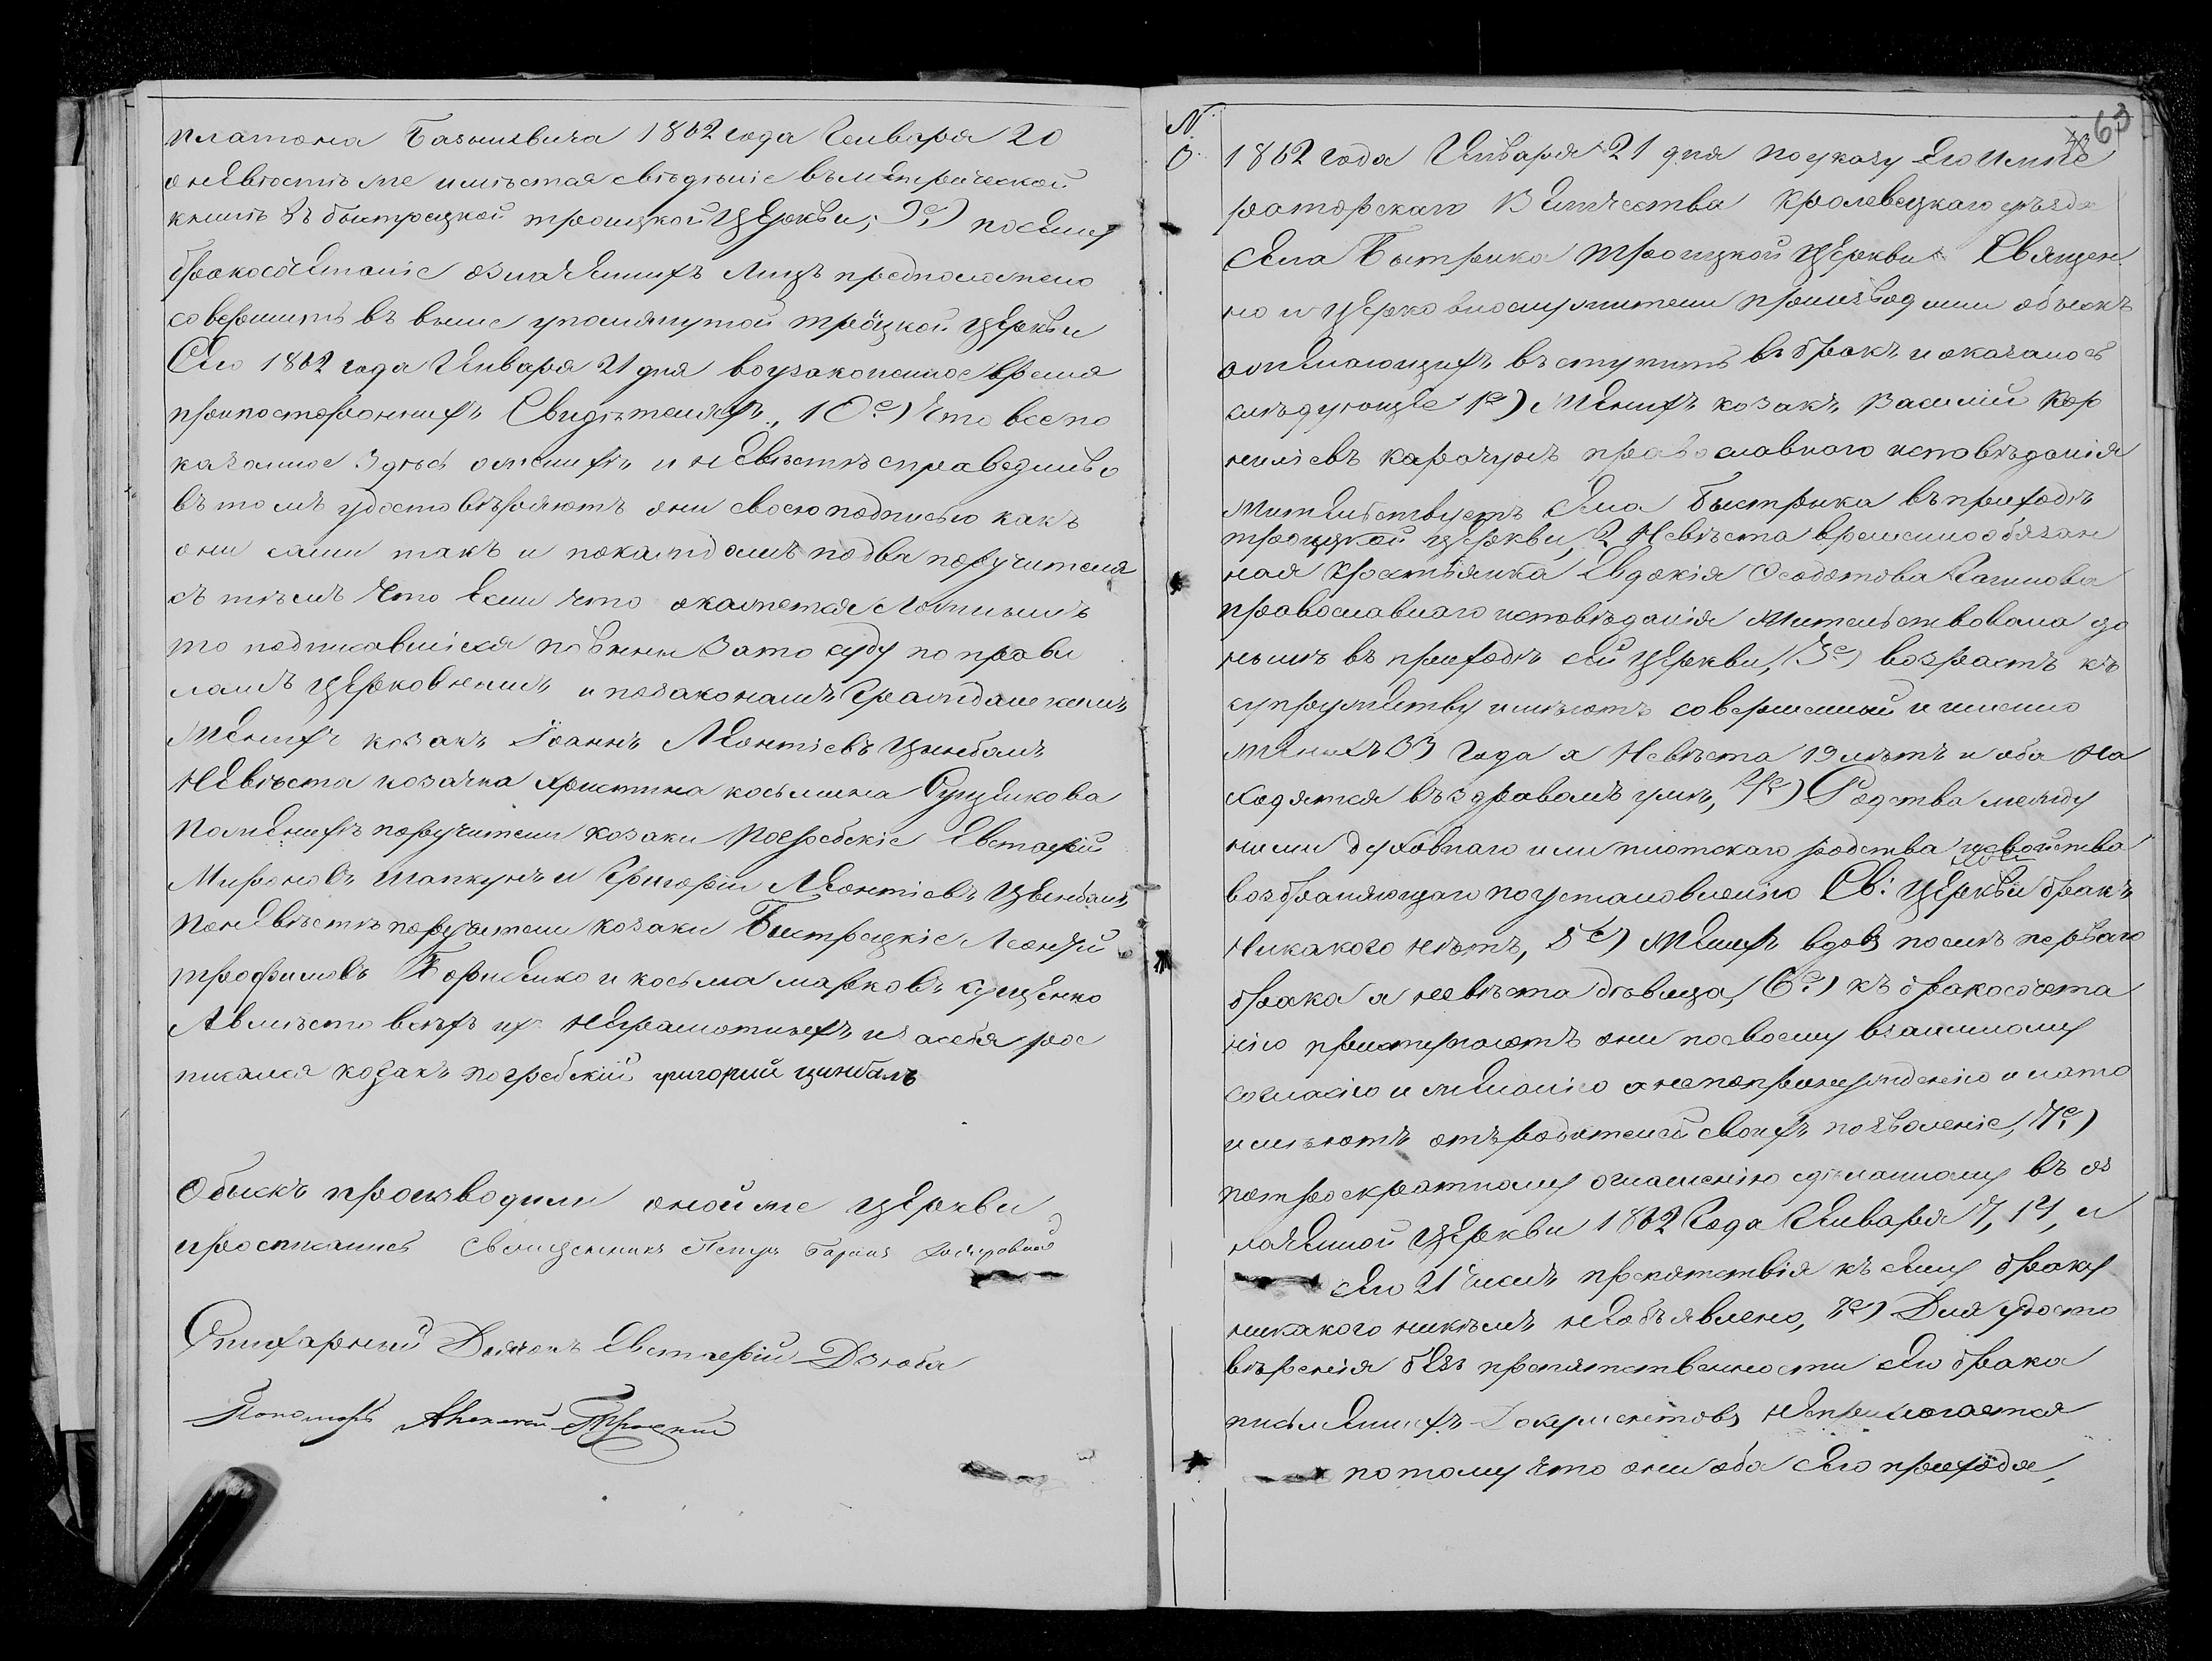 платона Базилевича 1862 года Генваря 20
о невѣстѣ же имѣется свѣдѣніе въ метрической
книгѣ въ быстрецкой троицкой Церкви; 9е) посему
бракосочетаніе означенныхъ лицъ предположено
совершить въ выше упомянутой троцкой церкви
Сего 1862 года Января 21 дня воузаконенное время
припостороннихъ Свидѣтеляхъ, 10е) Что все по
казанное Здѣсь ожених и невѣстѣ справедливо
въ томъ удостовѣряютъ они своею подписью какъ
они сами такъ и покаждомъ подва поручителя
съ тѣмъ что Если что окажется Ложнымъ
то подписавшіеся повинны Зато суду по прави
ламъ Церковнымъ и позаконамъ Гражданскимъ
Женихъ козакъ Іоаннъ Леонтіевъ Цимбалъ
Невѣста козачка Христина косьмина Сущенкова
Пожених поручители козаки Погребскіе Евстафій
Мироновъ шапкунъ и Григорій Леонтіевъ Цимбалъ
Поневѣстѣ поручители козаки Быстрецкіе Леонтій
трофимовъ Борисенко и косьма марковъ сущенко
Авмѣсто всѣхъ ихъ неграмотныхъ изасебя рос
писался козакъ погребскій григорий цимбалъ
Обыскъ производили онойже церкви
иросписались Священникъ Петръ
Дьячокъ Евстафій Дзюба
Пономарь
63
N.
6. 1862 года Января 21 дня поуказу Его Импе
раторскаго Величества Кролевецкаго уѣзда
села Быстрика троицкой церкви Священ
но и церковнослужители производили обыскъ
ожелающихъ вступить въ бракъ и оказалось
слѣдующее 1е) Женихъ козакъ Василий Кор
ниліевъ карачунъ православного исповѣданія
жительствуетъ села Быстрика въ приходѣ
троицкой церкви, 2 Невѣста временнообязан
ная крестьянка Евдокія Ѳеодотова
православнаго исповѣданія жительствовала до
нынѣ въ приходѣ сей церкви, 3е) возрастъ къ
супружеству имѣютъ совершенный и именно
женихъ 33 года а Невѣста 19 лѣтъ и оба на
ходятся въздравомъ умѣ, 4е) Родства между
ними духовнаго или плотскаго родства и свойства
возбраняющаго поустановленію Св: Церкви бракъ
Никакого нѣтъ, 5е) Женихъ вдовъ послѣ перваго
брака а невѣста дѣвица, 6е) къ бракосочета
нію приступаютъ они посвоему взаимному
согласію и желанію а непопринужденію и нато
имѣютъ отъродителей своихъ позволеніе, 7е)
потроекратному оглашенію сдѣланному въ оз
наченной церкви 1862 Года Января 7, 14, и
сего 21 чиселъ препятствія къ сему браку
никакого никѣмъ необъявлено, 8е) Для удосто
вѣренія безъ препятственности сего брака
письменныхъ Документовъ неприлагается
потому что они оба сего прихода,